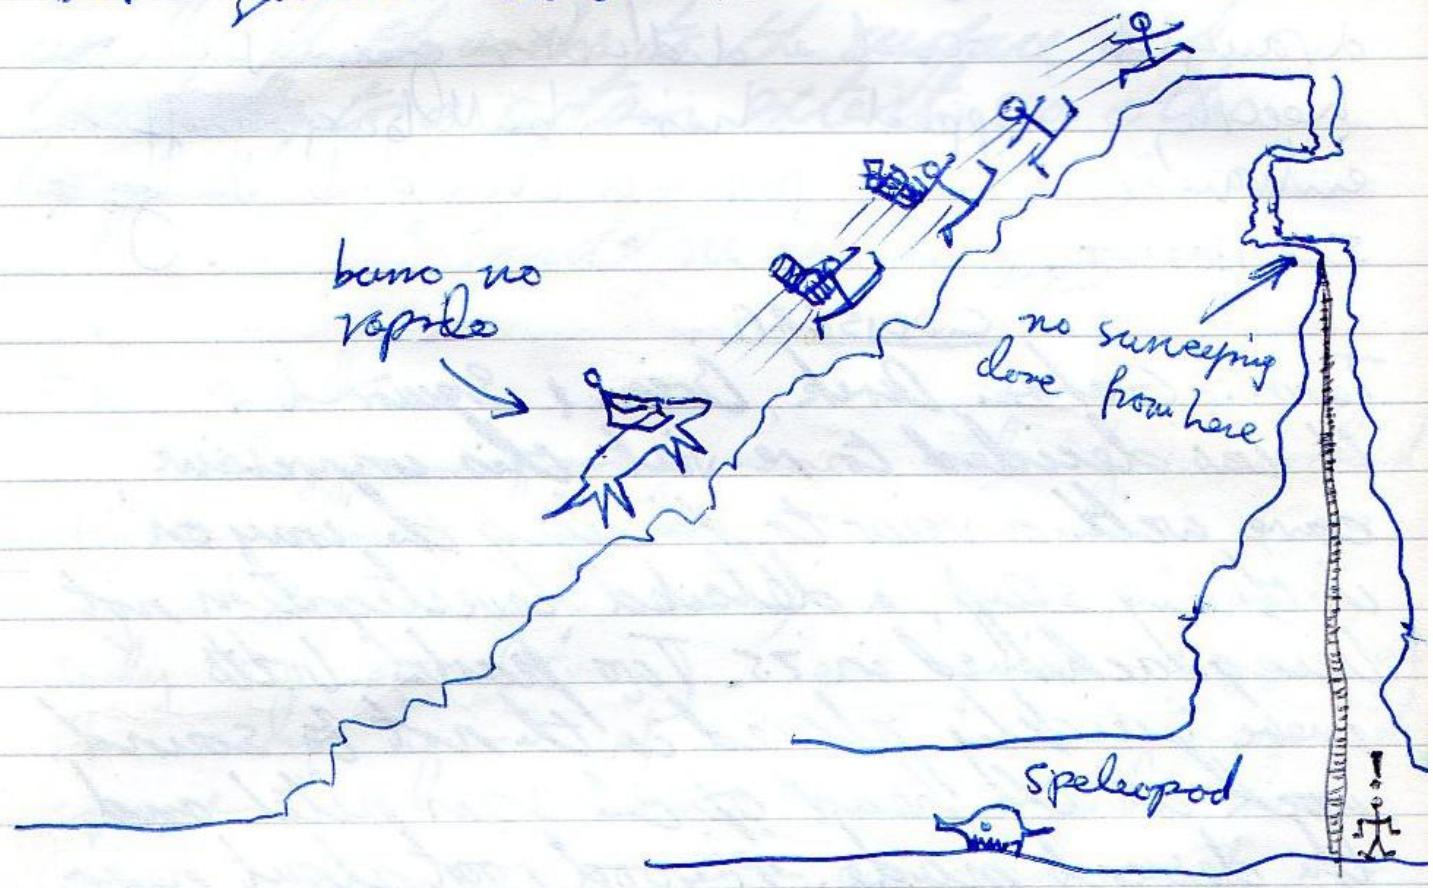 burro no
rapido
no surveying
done from here
speleopod
!